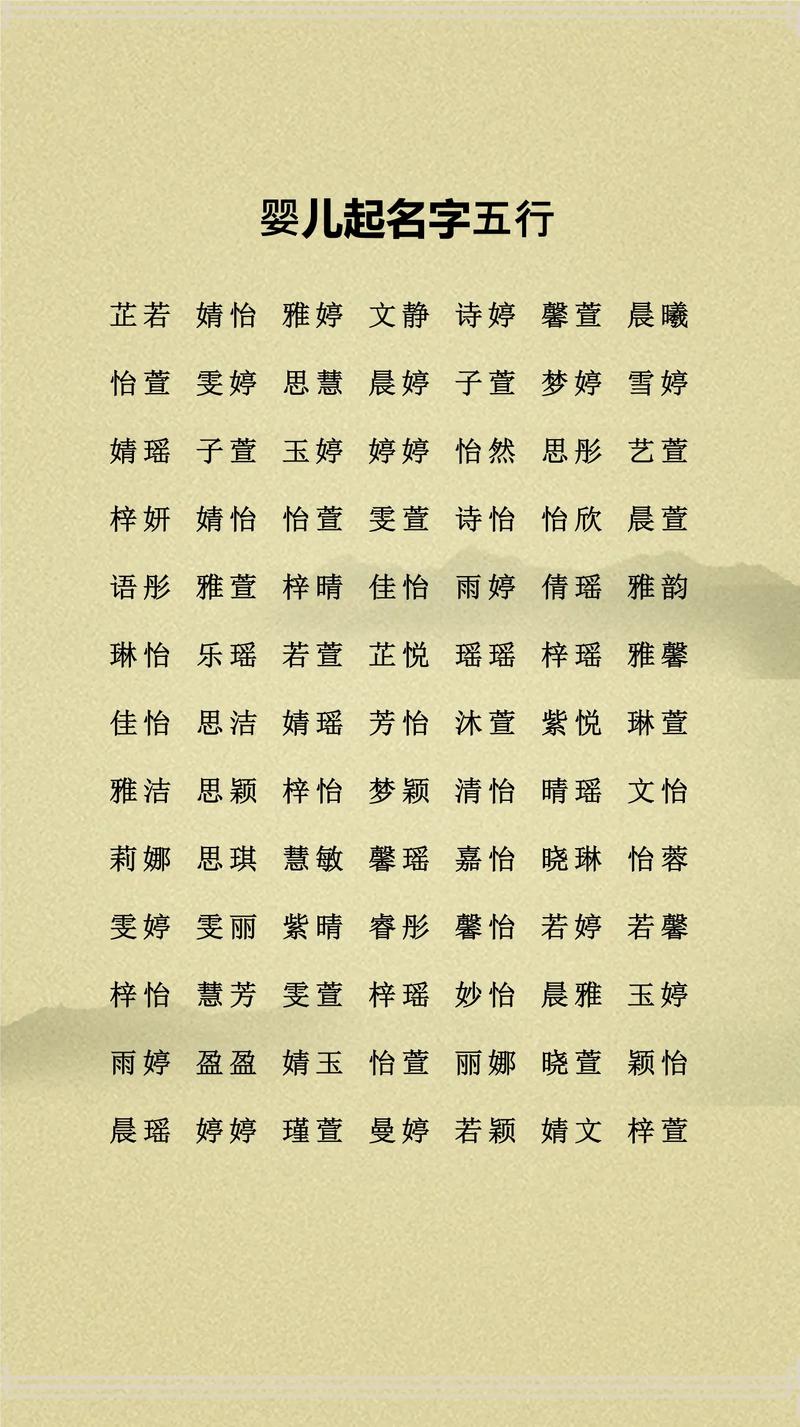 婴儿起名字五行
芷若 婧怡 雅婷 文静 诗婷 馨萱 晨曦
怡萱 雯婷 思慧 晨婷 子萱 梦婷 雪婷
婧瑶 子萱 玉婷 婷婷 怡然 思彤 艺萱
梓妍 婧怡 怡萱 雯萱 诗怡 怡欣 晨萱
语彤 雅萱 梓晴 佳怡 雨婷 倩瑶 雅韵
琳怡 乐瑶 若萱 芷悦 瑶瑶 梓瑶 雅馨
佳怡 思洁 婧瑶 芳怡 沐萱 紫悦 琳萱
雅洁 思颖 梓怡 梦颖 清怡 晴瑶 文怡
莉娜 思琪 慧敏 馨瑶 嘉怡 晓琳 怡蓉
雯婷 雯丽 紫晴 睿彤 馨怡 若婷 若馨
梓怡 慧芳 雯萱 梓瑶 妙怡 晨雅 玉婷
雨婷 盈盈 婧玉 怡萱 丽娜 晓萱 颖怡
晨瑶 婷婷 瑾萱 曼婷 若颖 婧文 梓萱